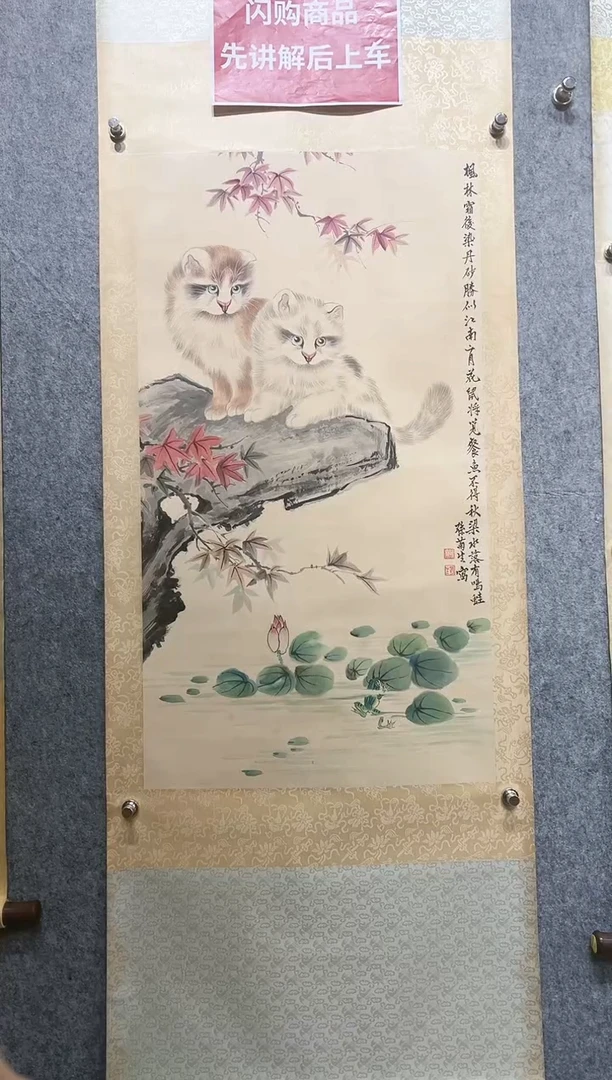 闪购商品
先讲解后上车
楓林霜後染丹砂勝似江南二月花鼠將羗餐魚不得秋梁水落有鳴蛙
徐菊生寫